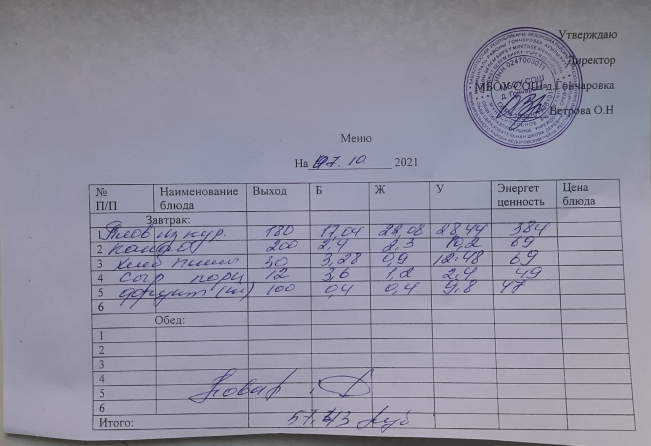 Утверждаю
Директор
МБОУ СОШ д.Гончаровка
Ветрова О.Н
ИНН 0247003011
Меню
На 07.10. 2021
№ П/П Наименование блюда Выход Б Ж У Энергет ценность Цена блюда
Завтрак:
1 Плов из кур. 180 17,04 28,44 384
2 200 2,4 2,3 69
3 хлеб 30 3,28 0,9 12.48 69
4 порц 12 3,6 1,2 2,4 49
5 фрукт 100 0,4 0,4 9,8 47
6
Обед:
1
2
3
4
5
6
Повар
Итого: 57.43 руб